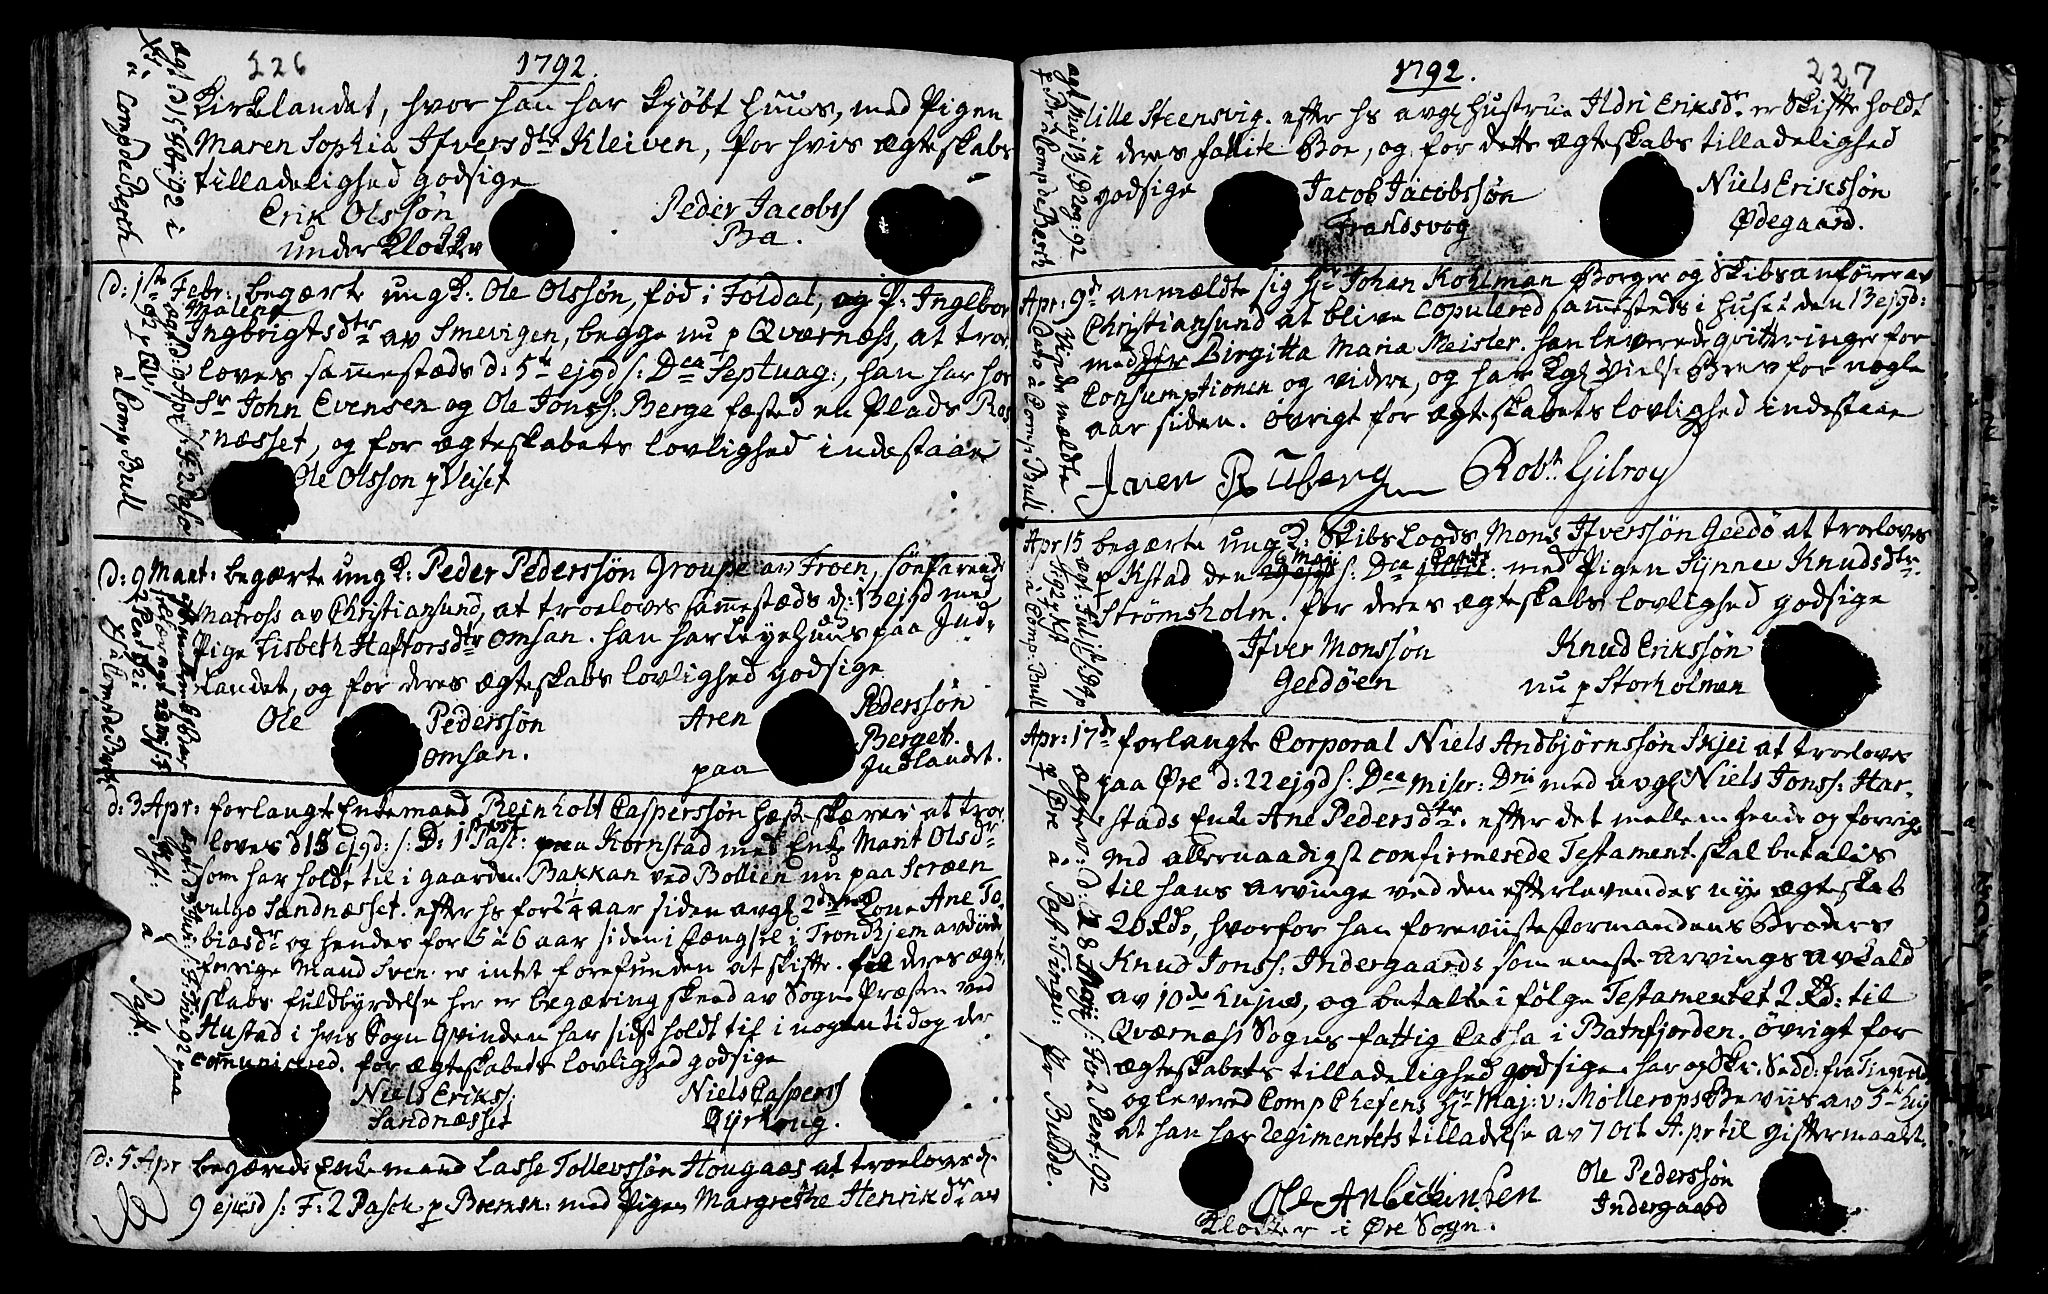 226
1792.
Kirkelandet, hvor han har kjøbt Huus, med Pigen
Maren Sophia Ifversdtr Kleiven, for hvis ægteskabs
tilladelighed godsige
Erik Olssøn
under Klokken
Peder Jacobss
Ba.
d: 1ste Febr: begærte ungk: Ole Olssøn, fød i Foldal, og P: Ingebor
Malena
Ingbrigtsdtr av Smevigen, begge nu p Qværness, at troe
loves sammestæds d: 5te ejgd s: Dca Septuag:, han har hos
Sr John Evensen og Ole Jonss: Berge fæsted en Plads Ras
næsset, og for ægteskabets lovlighed indestaae
Ole Olsson p Veiset
d: 9 Mart: begærte ungk: Peder Pederssøn Groupe av Froen, søefarende
Matross av Christiansund, at troeloves sammestæds d: 13 ejgd med
Pige Lisbeth Haftorsdtr Omsan. han har leye Huus paa Ind-
landet, og for deres ægteskabs lovlighed godsige
Ole Pederssøn
Omsan.
Aren Pederssøn
Berget.
paa Indlandet.
d: 3 Apr: forlangte Enkemand Reinholt Casperssøn Hæstskærer at troe
loves d 15 ejgd: s: D: 1 Post Pasc: paa Kornstad med Enke Marit Olsdr
som har holdt til i gaarden Bakkan ved Bollien nu paa Stræen
vulgo Sandnæsset. efter hs for 2¼ aar siden avgl 2den Kone Ane To-
biasdr og hendes for 5 à 6 aar siden i fængsel i Trondhjem avdøde
forrige Mand Sven er intet forefunden at skifte. til deres ægte
skabs fuldbyrdelse her er begæring skeed av Sogne Præsten ved
Hustad i hvis Sogn Qvinden har sidst holdt til i nogen tid og der
communicered. for ægteskabets lovlighed godsige
Niels Eriks:
Sandnæsset
Niels Caspers
Dyrhoug.
d: 5 Apr begærede Enkemand Lasse Tollevssøn Hougaas at troeloves d
9 ejusd s: F: 2 Pasch p Bremsn: med Pigen Margrethe Henriksdr av
227
1792.
lille Steensvig. efter hs avgl Hustrue Ildri Eriksdr er Skifte holdt
i deres fallite Boe, og for dette ægteskabs tilladelighed
godsige
Jacob Jacobssøn
Frandsvog
Niels Erikssøn
Ødegaard.
Apr: 9de anmældte sig Hr Johan Kohlman Borger og Skibsanfører av
Christiansund at blive copulered sammesteds i Huset den 13 ejgd:
med Jfr Birgitta Maria Meisler. han leverede qvitteringer for
Consumptionen og videre, og har Kgl Vielse Brev for nogle
aar siden. øvrigt for ægteskabets lovlighed indestaae
Iver Rusberg Robt Gilroy
Apr 15 begærte ungk: Skibs Loods Mons Ifverssøn Geedø at troeloves
6 Maji
p Kstad den 29 ejgd s: Dca Cantate med Pigen Synnev Knudsdtr
Strømsholm. for deres ægteskabs lovlighed godsige
Ifver Monssøn
Geedøen
Knud Erikssøn
nu p Storholmen
Apr: 17de forlangte Corporal Niels Andbjørnssøn Skjei at troeloves
paa Øre d: 22 ejgd s: Dca Miser: Dni med avgl Niels Jonss: Har-
stads Enke Ane Pedersdtr. efter det mellem hende og forrige
Md allernaadigst confirmerede Testament skal betales
til hans arvinge ved den efterlevendes nye ægteskab
20 Rd, hvorfor han foreviiste formandens Broders
Knud Jonss: Indergaards som eneste arvings avkald
av 10de hujus, og betalte i følge Testamentet 2 Rd: til
Qværness Sogns fattig Cassa i Batnfjorden. øvrigt for
ægteskabets tilladelighed godsige. har og Skr: Sedd: fra Tingvold
og levered Comp Chefens Hr Maj: v: Møllerops Beviis av 5te huj
at han har Regimentets tilladelse av 7 Oct A: pr til giftermaalet.
Ole Anbiörnsen
Kloster i Øre Sogn.
Ole Pederssøn
Indergaard